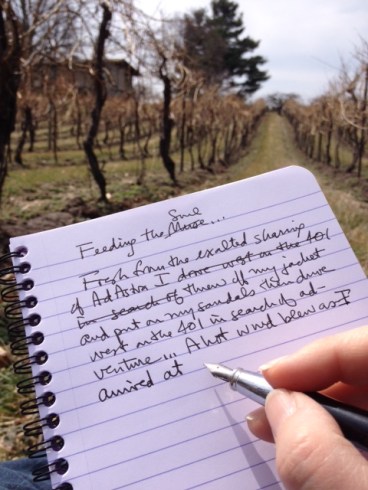 Soul
Feeding the Muse...
Fresh from the exalted sharing
of AdAstra I drove west on the 401
in search of threw off my jacket
and put on my sandals then drove
west on the 401 in search of ad-
venture... A hot wind blew as I
arrived at